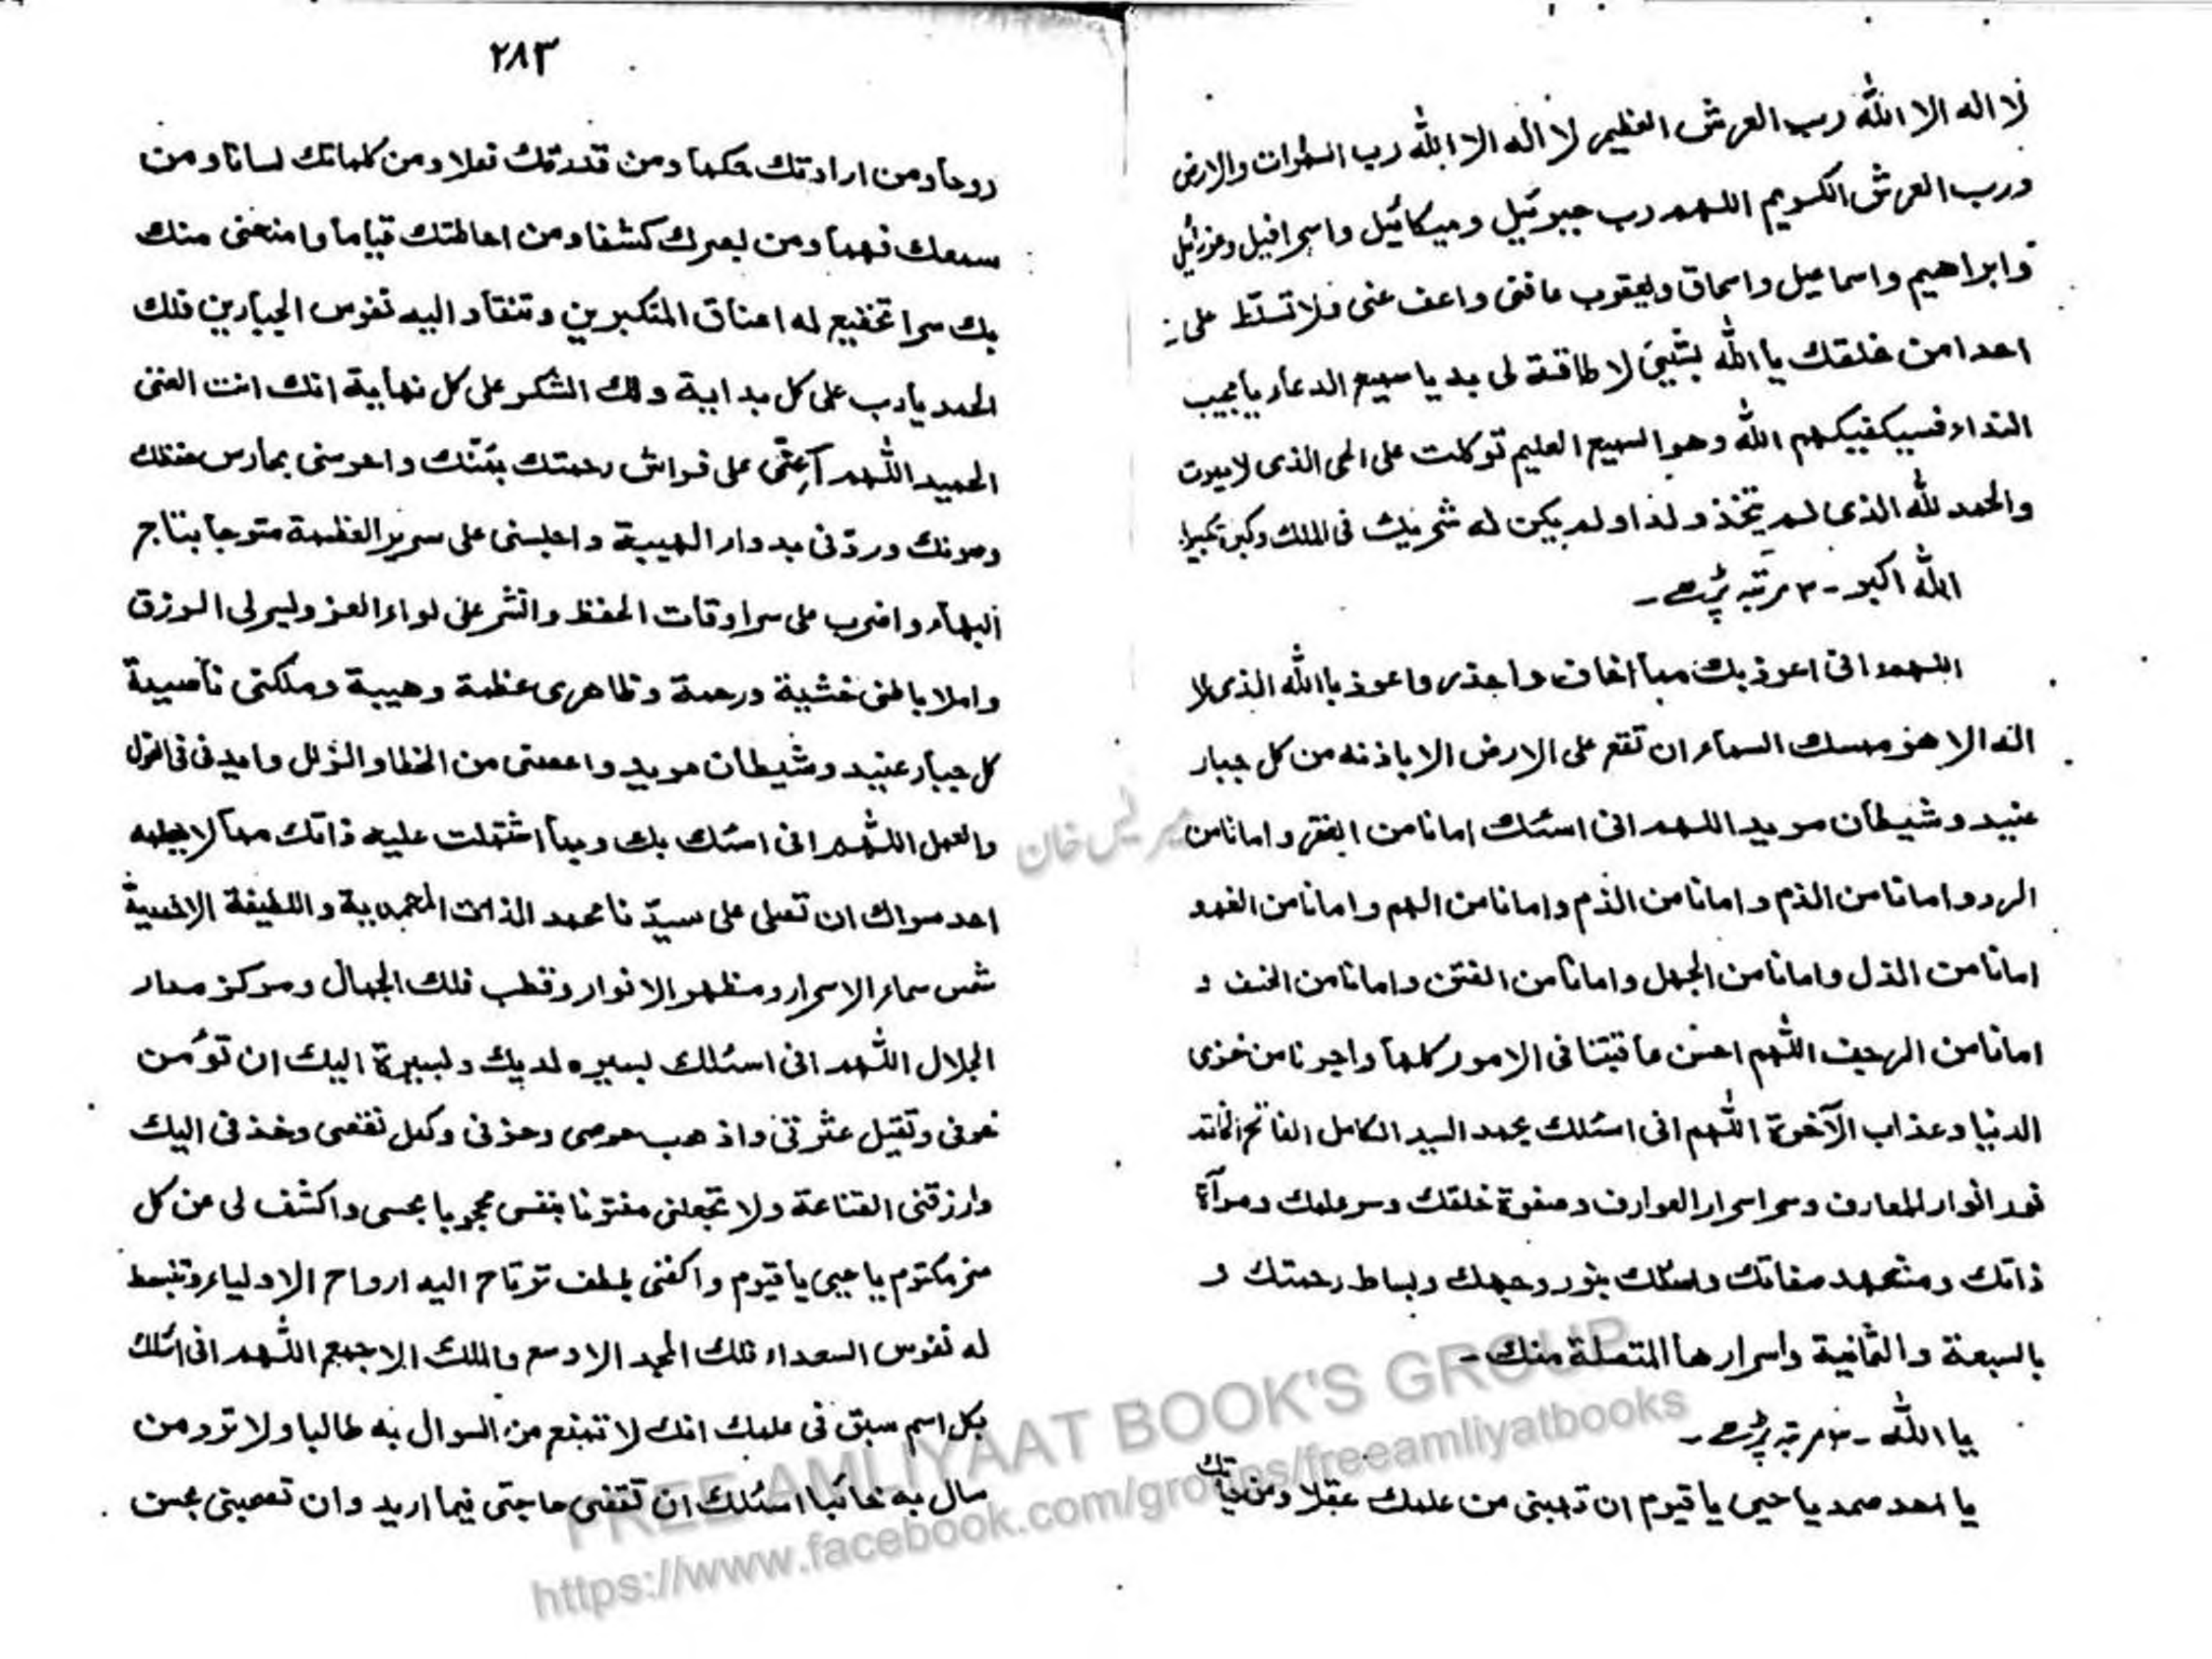 لا اله الا الله رب العرش العظيم لا اله الا الله رب السموات والارض
ورب العرش الكريم اللهم رب جبرئيل وميكائيل واسرافيل وعزرائيل
وابراهيم واسماعيل واسحاق ويعقوب عافنى واعف عنى ولا تسلّط على
احدا من خلقك يا الله بشيئ لا طاقة لى به يا سميع الدعاء يا مجيب
النداء فسيكفيكهم الله وهو السميع العليم توكلت على الحى الذى لا يموت
والحمد لله الذى لم يتخذ ولدا ولم يكن له شريك فى الملك وكبره تكبيرا
الله اكبر - ۳ مرتبہ پڑھے ۔
اللهم انى اعوذ بك مما اخاف واحذر واعوذ بالله الذى لا
اله الا هو ممسك السماء ان تقع على الارض الا باذنه من كل جبار
عنيد وشيطان مريد اللهم انى اسئلك امانا من الفقر وامانا من
الرد و امانا من الذم وامانا من الذم وامانا من الهم وامانا من الغم و
امانا من الذل وامانا من الجهل وامانا من الفتن وامانا من الخسف و
امانا من الرجيف اللهم احسن عاقبتنا فى الامور كلها واجرنا من خزى
الدنيا وعذاب الآخرة اللهم انى اسئلك بمحمد السيد الكامل الفاتح الخاتم
نور انوار المعارف وسر اسرار العوارف وصفوة خلقك وسر علمك ومرآة
ذاتك ومشهد صفاتك واسئلك بنور وجهك وبساط رحمتك و
بالسبعة والثمانية واسرارها المتصلة منك ۔
يا الله - مرتبہ پڑھے ۔
يا احد صمد يا حيى يا قيوم ان تهبنى من علمك عقلا ومن حياتك
۲۸۳
روحا ومن ارادتك حكما ومن قدرتك فعلا ومن كلماتك لسانا ومن
سمعك فهما ومن بصرك كشفا ومن احاطتك قياما وامنحنى منك
بك سرا تخضع له اعناق المتكبرين وتنقاد اليه نفوس الجبارين فلك
الحمد يا رب على كل بداية ولك الشكر على كل نهاية انك انت الغنى
الحميد اللهم على فراش رحمتك بمنّك واحرسنى بحارس حفظك
وصونك وردّنى بدوار الهيبة واجلسنى على سرير العظمة متوجا بتاج
البهاء واضرب على سراوقات الحفظ وانشر على لواء العز ويسر لى الرزق
واملا باطنى خشية ورحمة وظاهرى عظمة وهيبة وملكنى ناصية
كل جبار عنيد وشيطان مريد واعصمنى من الخطا والزلل وايدنى فى القول
والعمل اللهم انى اسئلك بك وبما اشتملت عليه ذاتك مما لا يعلمه
احد سواك ان تصلى على سيدنا محمد الذات المحمدية واللطيفة الاحدية
شمس سماء الاسرار ومظهر الانوار وقطب فلك الجمال ومركز مدار
الجلال اللهم انى اسئلك بسيره لديك وبسيرة اليك ان تؤمن
خوفى وتقيل عثرتى واذهب حرصى وحزنى وكمل نقصى وخذنى اليك
وارزقنى القناعة ولا تجعلنى مفتونا بنفسى محجوبا بحسى واكشف لى عن كل
سر مكتوم يا حيى يا قيوم واكفنى بلطف ترتاح اليه ارواح الاولياء وتنبسط
له نفوس السعداء فلك المجد الاوسع والملك الاجمع اللهم انى اسئلك
بكل اسم سبق فى علمك انك لا تمنع من السوال به طالبا ولا ترد من
سال به خائبا اسئلك ان تقضى حاجتى فيما اريد وان تصحبنى بحسن
میر خان
FREE AMLIYAAT BOOK'S GROUP
https://www.facebook.com/groups/freeamliyatbooks